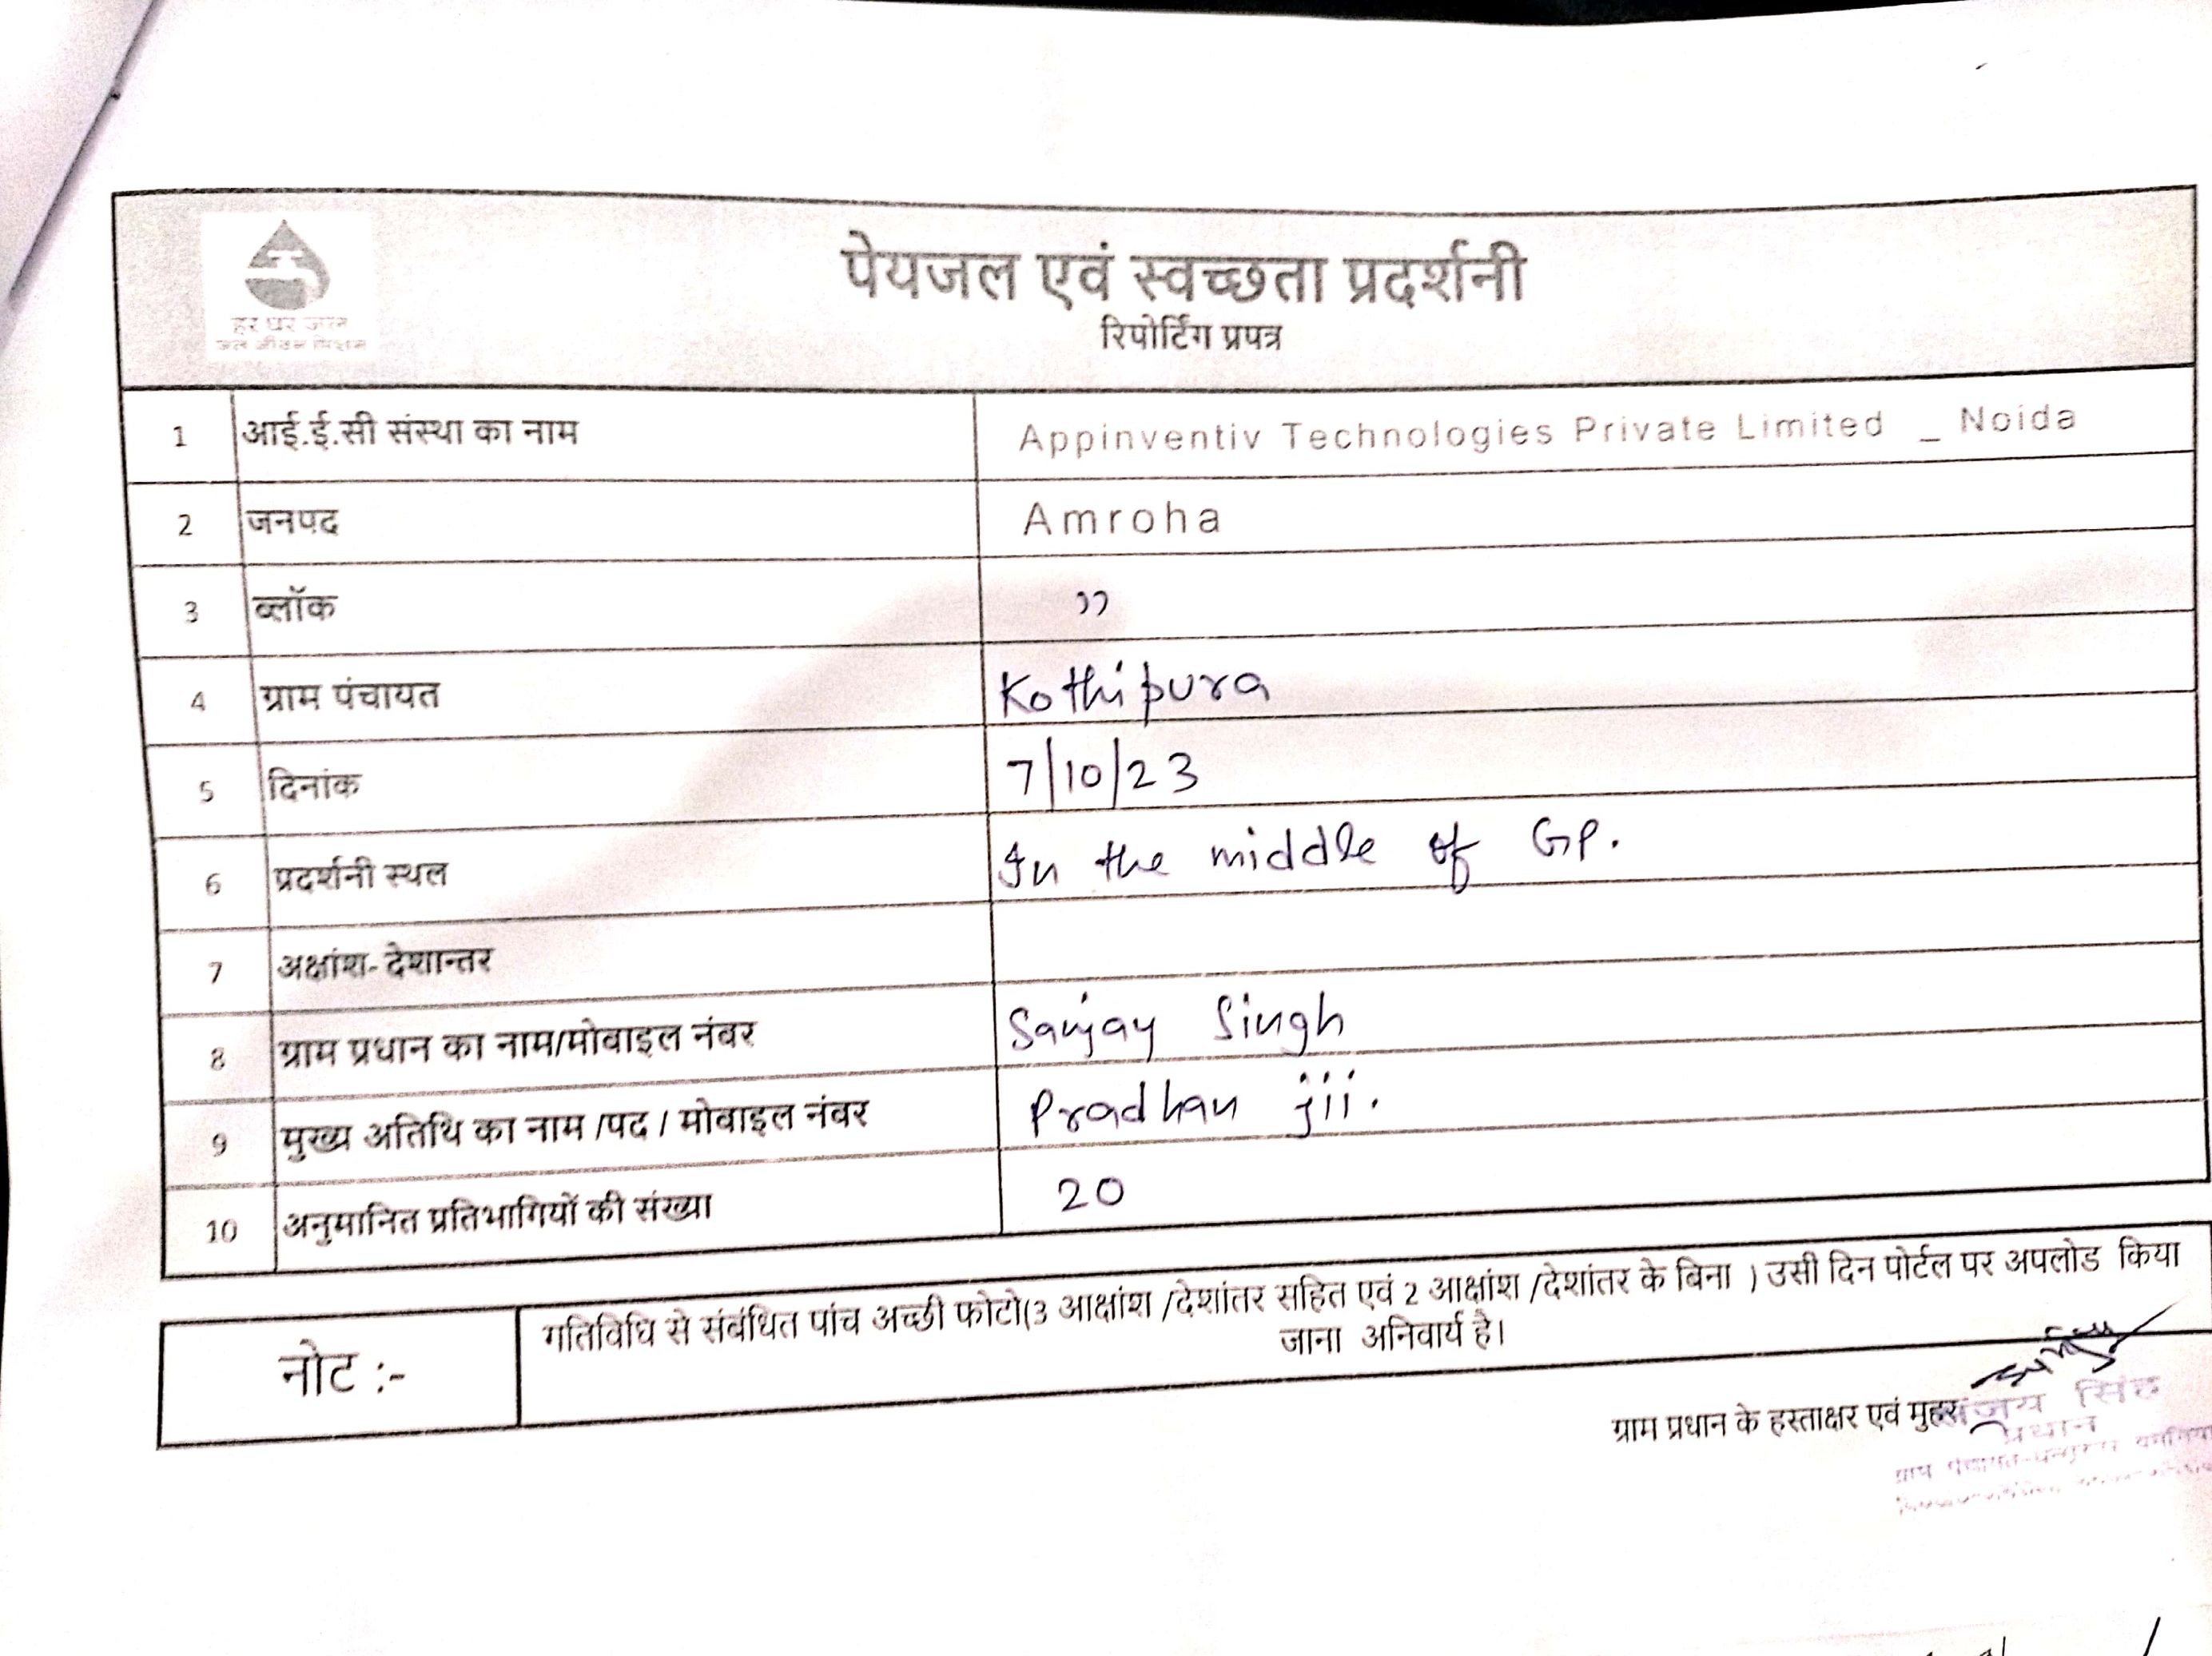 हर घर जल
जल जीवन मिशन
पेयजल एवं स्वच्छता प्रदर्शनी
रिपोर्टिंग प्रपत्र
1 आई.ई.सी संस्था का नाम Appinventiv Technologies Private Limited _ Noida
2 जनपद Amroha
3 ब्लॉक ,,
4 ग्राम पंचायत Kothipura
5 दिनांक 7/10/23
6 प्रदर्शनी स्थल In the middle of GP.
7 अक्षांश- देशान्तर
8 ग्राम प्रधान का नाम/मोबाइल नंबर Sanjay Singh
9 मुख्य अतिथि का नाम /पद / मोबाइल नंबर Pradhan jii.
10 अनुमानित प्रतिभागियों की संख्या 20
नोट :- गतिविधि से संबंधित पांच अच्छी फोटो(3 आक्षांश /देशांतर सहित एवं 2 आक्षांश /देशांतर के बिना ) उसी दिन पोर्टल पर अपलोड किया
जाना अनिवार्य है।
ग्राम प्रधान के हस्ताक्षर एवं मुहर
संजय सिंह
प्रधान
ग्राम पंचायत